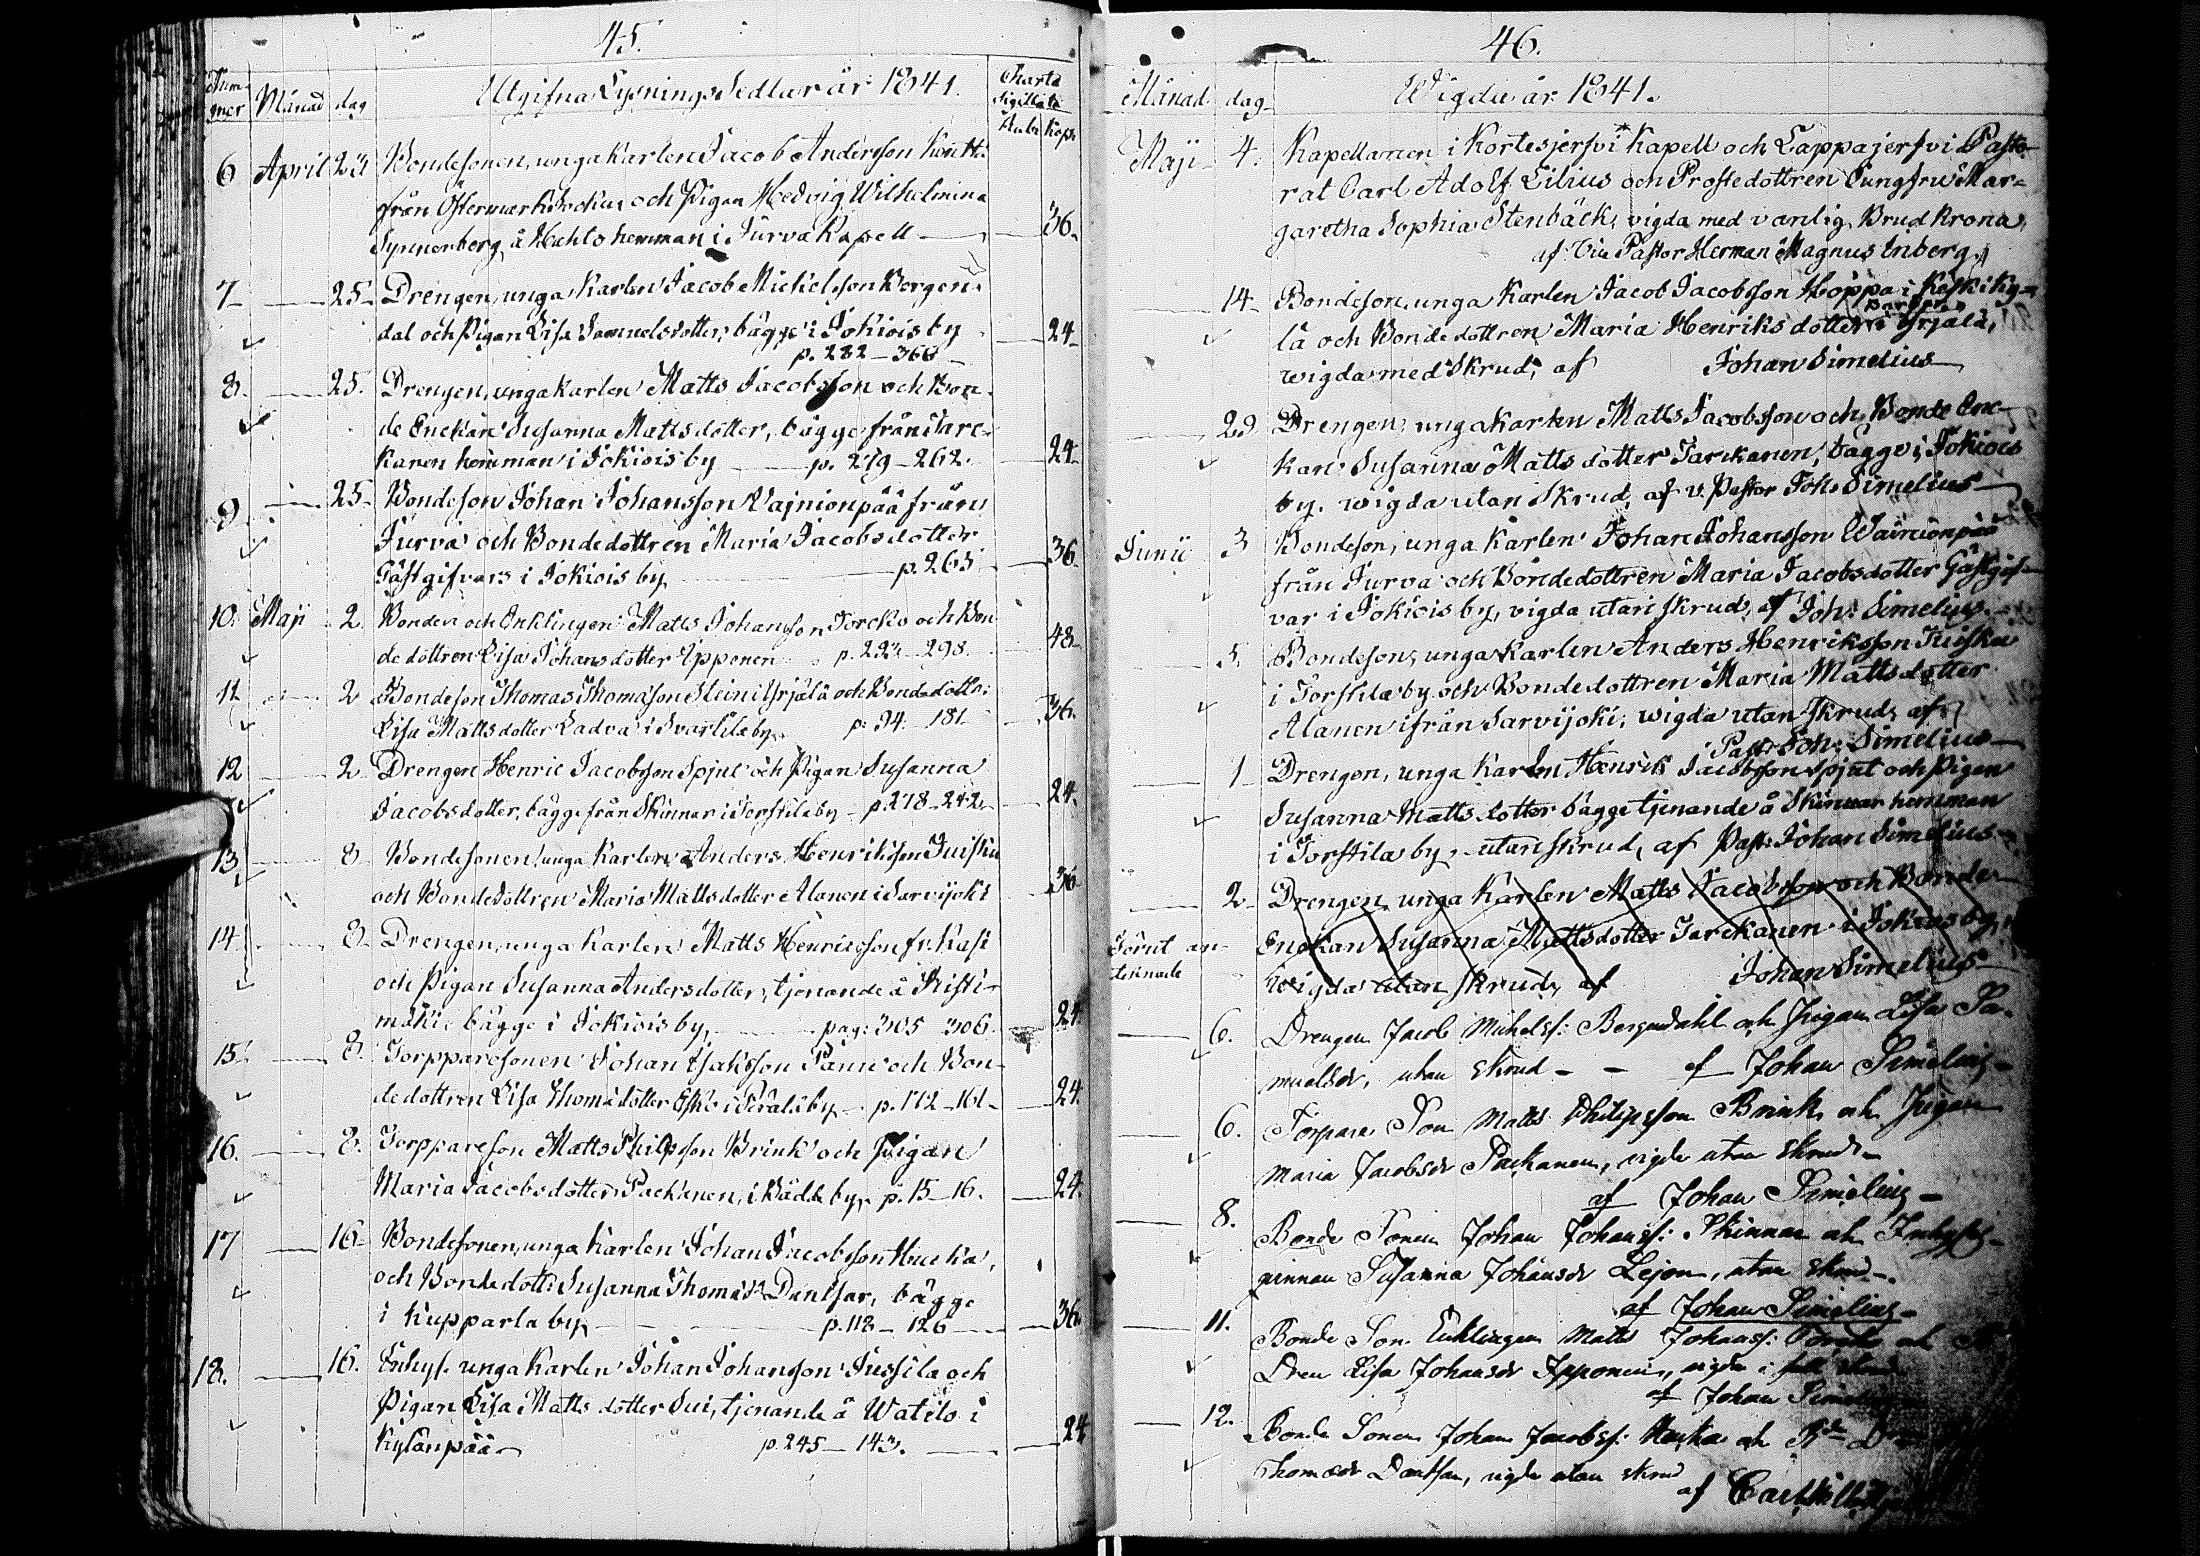 45.
Num-
mer
Månad
dag
Utgifna Lysnings Sedlar år 1841.
Charta
Sigillata
Rub:
Kop:
6 April 24 Bondesonen, unga Karlen Jacob Andersson
från Östermark Sockn och Pigan Hedvig Wilhelmina
Synnerberg, å Hahto hemman i Jurva Kapell — 36.
7 — 25 Drengen, unga Karlen Jacob Michelsson Bergen-
dal och Pigan Lisa Samuelsdotter, bägge i Jokiois by — 24
p. 282 — 366
8. — 25. Drengen, unga karlen Matts Jacobsson och Bon-
de Enckan Susanna Matts dotter, bägge från Tarc-
kanen hemman i Jokiois by — p. 279 — 262. — 24
9. — 25 Bondeson Johan Johansson Vajnionpää från
Jurva och Bondedottren Maria Jacobsdotter
Gästgifvars i Jokiois by — p. 263 — 36
10. Maji 2 Bonden och Enklingen Matts Johansson Torcko och Bon
de dottren Lisa Johansdotter Ypponen p. 294 — 298. — 48
11 — 2 Bondeson Thomas Thomasson Steini Yrjälä och Bondedottr:
Lisa Mattsdotter Ladva i Svartila by p: 94. — 181 — 36.
12 — 2 Drengen Henric Jacobsson Spjut och Pigan Susanna
Jacobsdotter, bägge från Skinnar i Torstila by — p. 278 — 242. — 24.
13. — 8 Bondesonen, unga Karlen Anders Henriksson Juisku
och Bondedottren Maria Mattsdotter Alanen i Sarvijoki — 36
14. — 8 Drengen, unga Karlen Matts Henricsson fr. Kasi
och Pigan Susanna Andersdotter, tjenande å Risti-
mäki bägge i Jokiois by, — pag: 305 306. — 24.
15. — 8. Torpparesonen Johan Isaksson Panu och Bon-
dedottren Lisa Thomædotter Esko i Perälä by — p. 172 — 161 — 24.
16. — 8. Torppareson Matts Philpsson Brink och Pigan
Maria Jacobsdotter Packanen, i Rädde by, p. 15 — 16. — 24.
17 — 16 Bondesonen, unga Karlen Johan Jacobsson Hucka,
och Bondedott: Susanna Thomæd:r Dantsar, bägge
i Kupparla by, — p. 118 — 126 — 36
18. — 16. Inhys. unga Karlen Johan Johansson Jussila och
Pigan Lisa Matts dotter Sui, tjenande å Watilo i
Kylänpää — p. 245 — 143. — 24
46.
Månad
dag
Wigde år 1841.
Maji 4. Kapellanen i Kortesjerfvi Kapell och Lappajerfvi Pasto-
rat Carl Adolf Lilius och Prostedottren Jungfru Mar-
garetha Sophia Stenbäck, vigda med vanlig Brud Krona,
af Vice Pastor Herman Magnus Enberg.
— 14 Bondeson, unga Karlen Jacob Jacobsson Hoppa i Koskiky-
lä och Bonde dottren Maria Henriks dotter Yrjälä,
wigda med Skrud, af Johan Simelius
— 29 Drengen, unga Karlen Matts Jacobsson och Bonde Enc-
kan Susanna Matts dotter Tarckanen, bägge i Jokiois
by. wigda utan Skrud, af v. Pastor Joh: Simelius
Junii 3 Bondeson, unga Karlen Johan Johansson Wainionpää
från Jurva och Bondedottren Maria Jacobsdotter Gästgif-
var i Jokiois by, vigda utan skrud, af Joh: Simelius.
— 5. Bondeson, unga Karlen Anders Henriksson Juisku
i Torstila by och Bondedottren Maria Mattsdotter
Alanen ifrån Sarvijoki, wigda utan Skrud, af
Past: Joh: Simelius
— 1 Drengen, unga Karlen Henrik Jacobsson Spjut och Pigan
Susanna Mattsdotter bägge tjenande å Skinnar hemman
i Torstila by, utan skrud, af Past: Johan Simelius
— 2 Drengen, unga Karlen Matts Jacobsson och Bonde
Förut an-
tecknade
Enckan Susanna Mattsdotter Tarckanen i Jokiois by,
wigda utan skrud, af Johan Simelius
— 6. Drengen Jacob Michelss: Bergendahl och Pigan Lisa Sa-
muelsdr, utan skrud — — af Johan Simelius
— 6. Torpare Son Matts Philipsson Brink och Pigan
Maria Jacobsdr Packanen, vigde utan skrud
af Johan Simelius —
— 8. Bonde Sonen Johan Johanss: Skinnar och Inhyses-
qvinnan Susanna Johansdr Lejon, utan skrud —
af Johan Simelius —
— 11. Bonde Son Enklingen Matts Johanss: Torcko och
Dren Lisa Johansdr Ypponen, vigde i full skrud
af Johan Simelius
— 12. Bonde Sonen Johan Jacobss: Hucka och
Thomædr Dantsar, vigde utan skrud
af Carl